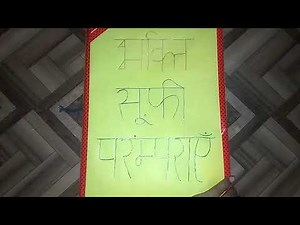 भक्ति
सूफी
परंम्पराएँ